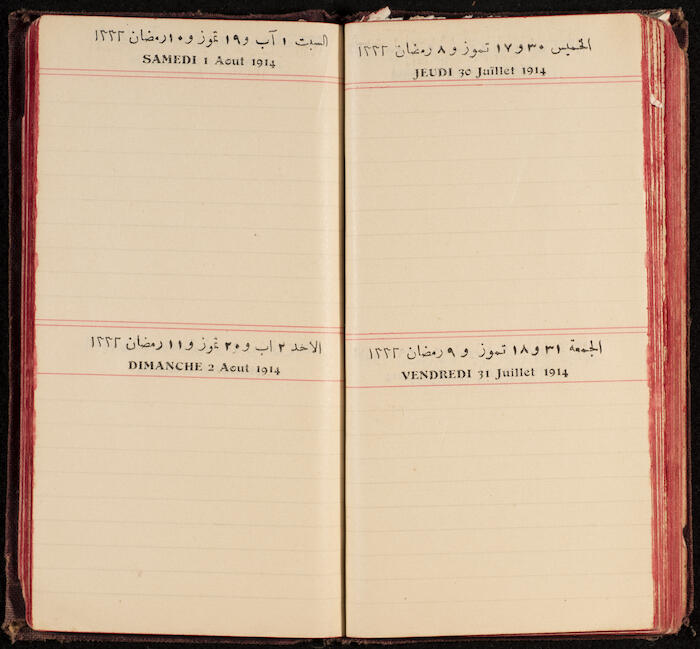 الخميس ٣٠ و ١٧ تموز و ٨ رمضان ١٣٣٢
JEUDI 30 Juillet 1914
الجمعة ٣١ و ١٨ تموز و ٩ رمضان ١٣٣٢
VENDREDI 31 Juillet 1914
السبت ١ آب و ١٩ تموز و ١٠ رمضان ١٣٣٢
SAMEDI 1 Aout 1914
الاحد ٢ اب و ٢٠ تموز و ١١ رمضان ١٣٣٢
DIMANCHE 2 Aout 1914